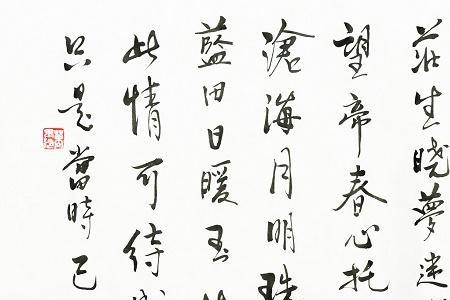 莊生曉夢迷
望帝春心托
滄海月明珠
藍田日暖玉
此情可待成
只是當時已